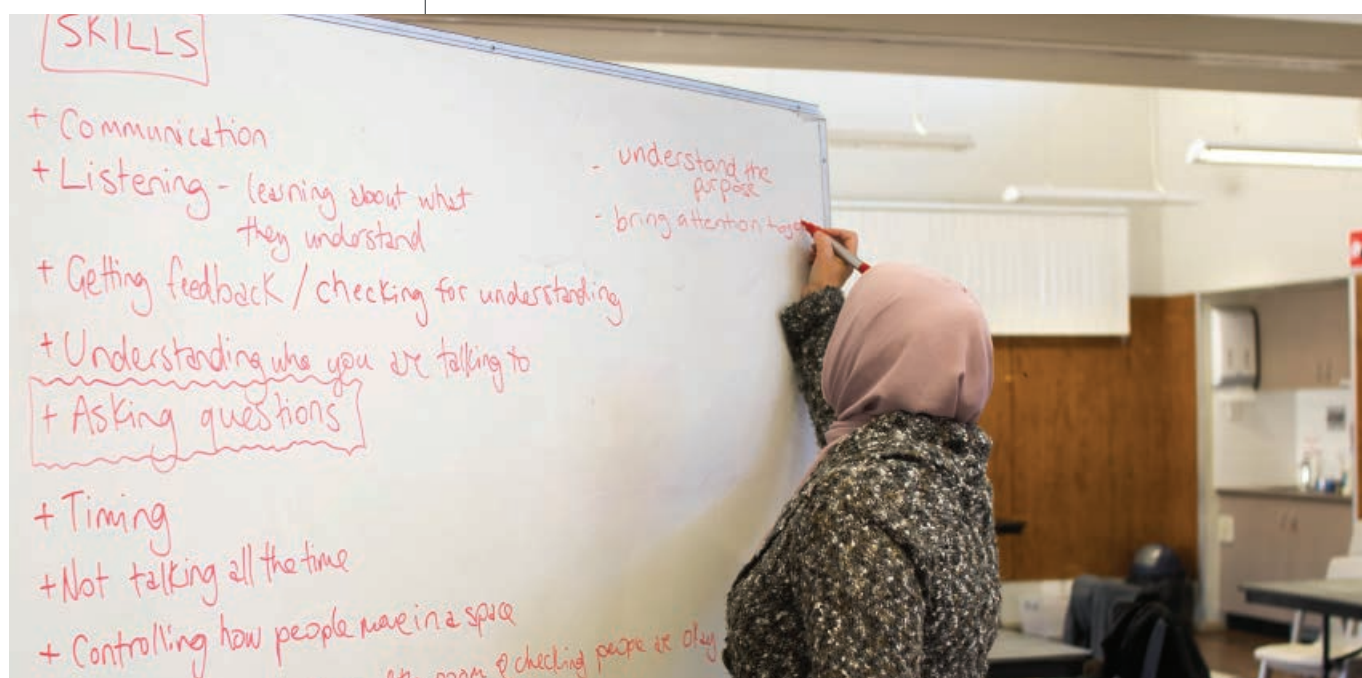 SKILLS
+ Communication
+ Listening - learning about what
they understand
+ Getting feedback / checking for understanding
+ Understanding who you are talking to
+ Asking questions
+ Timing
+ Not talking all the time
+ Controlling how people move in a space
room & checking people are okay
- understand the
purpose
- bring attention toge